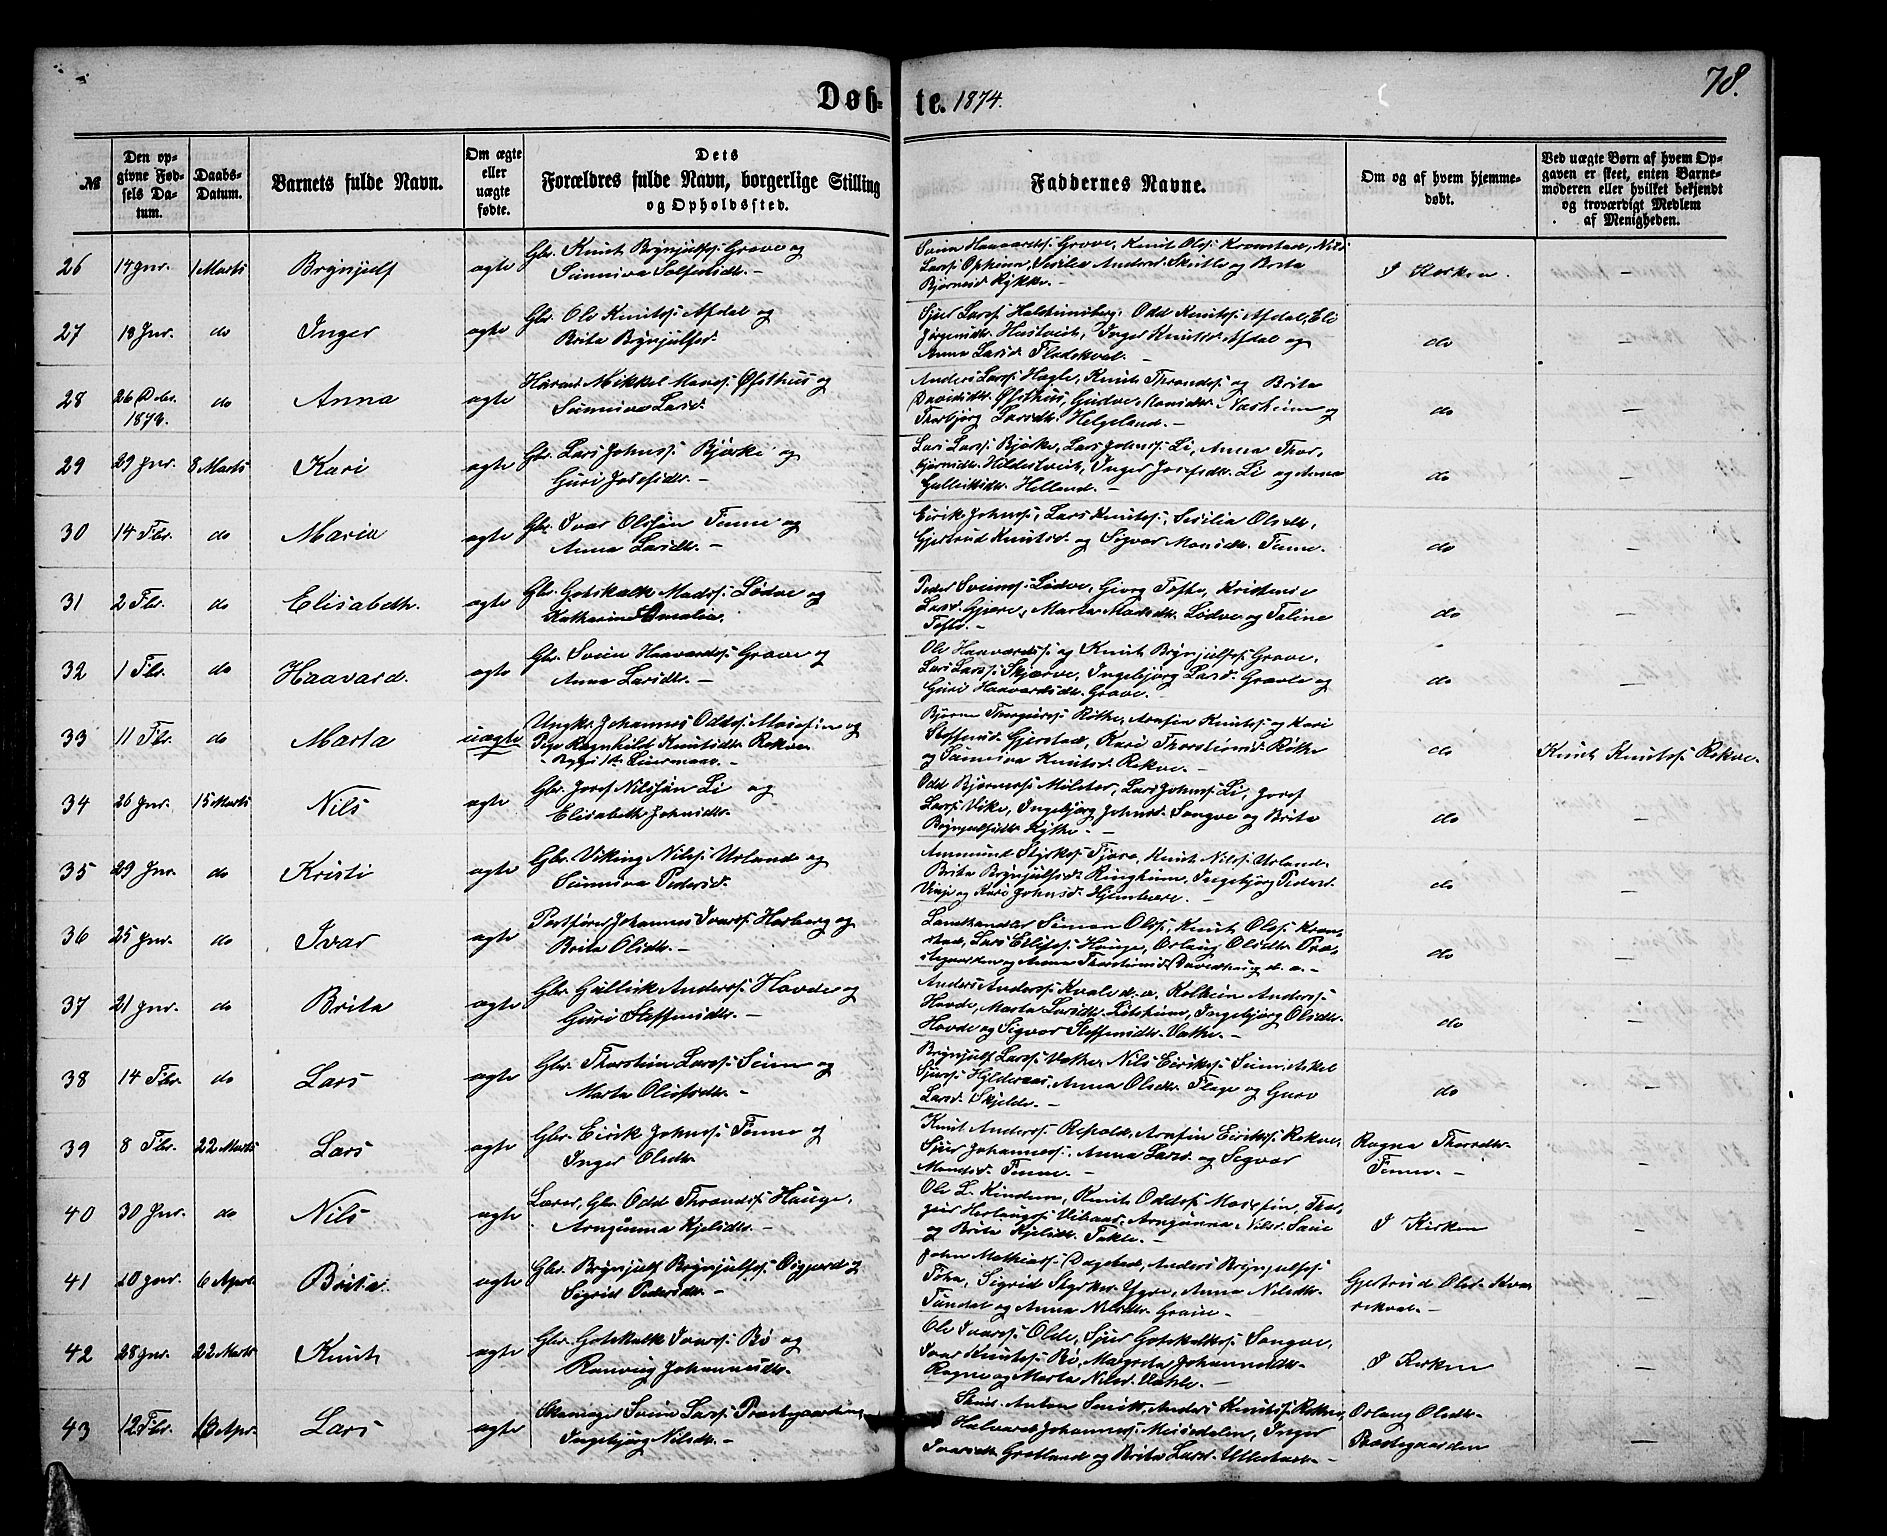 78.
Døbte. 1874.
№
Den opgivne Fødsels Datum.
Daabs-Datum.
Barnets fulde Navn.
Om ægte eller uægte fødte.
Dets Forældres fulde Navn, borgerlige Stilling og Opholdssted.
Faddernes Navne.
Om og af hvem hjemmedøbt.
Ved uægte Børn af hvem Opgaven er skeet, enten Barnemoderen eller hvilket bekjendt og troværdigt Medlem af Menigheden.
26 14 Jnr. 1 Marts Brynjulf ægte Gbr. Knut Brynjulfs: Grove og
Sunniva Solfestdr. –
Svein Haavards: Grove, Knut Ols: Kronstad, Nils
Lars: Opheim, Sesilia Andersd. Skutle og Brita
Bjørnsd. Rykke. –
I Kirken. –
27 19 Jnr. do Inger ægte Gbr. Ole Knuts: Afdal og
Brita Brynjulfsd.
Sjur Lars: Odd Knuts: Afdal, Eli
Inger Knutsdr. Afdal og
Anna Larsd. Flatekval. –
do –
28 26 Debr. 1873. do Anna ægte Mikkel Mons: Øfsthus og
Sunniva Larsd.
Anders Lars: Hægle, Knut Thronds: og Brita
Davidsdr. Øfsthus, Gudve Monsdr. Væsheim og
Thorbjørg Larsdr. Helgeland. –
do –
29 29 Jnr. 8 Marts Kari ægte Gbr. Lars Johns: Bjørke og
Guri Josefsdr. –
Lars Lars: Bjørke, Lars Johns: Li, Anna Thor-
bjørnsdr. Hildestveit, Inger Josefsdr. Li og Anna
Gulleiksdr. Helland. –
do –
30 14 Fbr. do Maria ægte Gbr. Ivar Olsson Finne og
Anna Larsdr. –
Eirik Johns:, Lars Knuts:, Sesilia Olsdr.,
Gjertrud Knutsd. og Sigvor Monsdr. Finne.
do –
31 2 Fbr. do Elisabeth. ægte Gbr. Gotskalk Mads: Lødve og
Katharine Amalia.
Peder Sveins: Lødve, Georg Tofte, Kristense
Larsd. Gjære, Marta Madsdr. Lødve og Taline
Tofte. –
do –
32 1 Fbr. do Haavard. ægte Gbr. Svein Haavards: Grove og
Anna Larsdr. –
Ole Haavards: og Knut Brynjulfs: Grove,
Lars Lars: Skjerve, Ingebjørg Larsd. Græe og
Guri Haavardsdr. Grove. –
do –
33 11 Fbr. do Marta uægte Ungkr. Johannes Odds: Mosefin og
Pige Ragnhild Knutsdr. Rekve
– Begges 1ste Leiermaal. –
Bjørne Thorgeirs: Røthe, Arnfin Knuts: og Kari
Steffensd. Gjerstad, Kari Thorsteinsd. Røthe
og Sunniva Knutsd. Rekve. –
do Knut Knuts: Rekve.
34 26 Jnr. 15 Marts Nils ægte Gbr. Josef Nilssøn Li og
Elisabeth Johnsdr.
Odd Bjørns: Mølster, Lars Johns: Li, Josef
Lars: Vike, Ingebjørg Johnsd. Songve og Brita
Brynjulfsdr. Kyte. –
do –
35 29 Jnr. do Kristi ægte Gbr. Viking Nils: Urland og
Sunniva Pedersd.
Ammund Styrks: Fjose, Knut Nils: Urland.
Brita Brynjulfsd. Ringheim, Ingebjørg Pedersd.
Vinje og Kari Johnsd. Hjembære. –
do –
36 25 Jnr. do Ivar ægte Postfører Johannes Ivars: Horberg og
Brita Olsdr. –
Landhandler Simon Ols:, Knut Ols: Kron-
stad, Lars Erliks: Hauge, Orlaug Olsdr. Præ-
stegaarden og Anna Thorsteinsd. Davidhaug d. æ. –
do –
37 21 Jnr. do Brita ægte Gbr. Gullik Anders: Hovde og
Guri Steffensdr. –
Anders Anders: Kvale d. æ. Kolbein Anders:
Hovde, Marta Larsdr. Lidsheim, Ingebjørg Olsdr.
Hovde og Sigvor Steffensdr. Væthe. –
do –
38 14 Fbr. do Lars ægte Gbr. Thorstein Lars: Seim og
Marta Olsdr. –
Brynjulf Lars: Væthe, Nils Eiriks: Seim, Askel
Sjurs: Hylderaas, Anna Olsdr. Flage og Guro
Larsd. Skjelde. –
do –
39 8 Fbr. 22 Marts Lars ægte Gbr. Eirik Johns: Finne og
Inger Olsdr.
Knut Anders: Repål, Arnfin Eiriks: Rekve,
Sjur Johannes: Anna Larsd. og Sigvor
Monsd. Finne. –
Ragna Thorsdr.
Finne. – –
40 30 Jnr. do Nils ægte Lærer, Gbr. Odd Thronds: Hauge,
Arngunna Kjelsdr. –
Ole L. Kindem, Knut Odds: Mosefin, Thor-
geir Herlaugs: Arngunna Nilsd. Saue
og Brita Kjelsdr. Takle. –
I Kirken –
41 20 Jnr. 6 Apr. Brita ægte Gbr. Brynjulf Brynjulfs: Giggord og
Sigrid Pedersdr. –
John Mathias: Dagestad, Anders Brynjulfs:
Sigrid Styrksd. Ygre, Anna Nilsdr.
Tundal og Anna Nilsdr. Graue. –
Gjertrud Olsd. Kvar-
rekval. – –
42 28 Jnr. 22 Marts Knut ægte Gbr. Gotskalk Ivars: Bø og
Ranveig Johannesdr.
Ole Ivars: Olde, Sjur Gotskalks: Songve,
Ivar Knuts: Bø, Margreta Johannesdr.
Rogne og Marta Nilsd. Væthe. –
I Kirken –
43 12 Fbr. 13 Apr. Lars ægte Skomager Svein Lars: Præstegaarden,
Ingebjørg Nilsdr. –
Anton Smitt, Anders Knuts:
Halvard Johannes: Missedalen, Inger
Ivarsdr. Grotland og Brita Larsd. Ullestad. –
Orlaug Olsdr.
Præstegaarden –